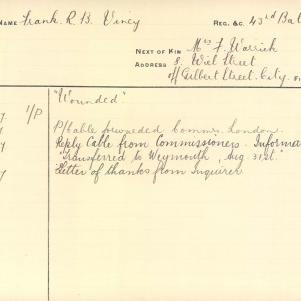 NAME Frank. R. B. Viney REG. &C. 43rd Bat
NEXT OF KIN Mrs F. Warrick
ADDRESS 8. Street
off Gilbert Street. City.
I/P "Wounded"
P/Cable forwarded Commrs. London.
Reply Cable from Commissioners.
"Transferred to Weymouth, Aug 31st."
Letter of thanks from Inquirer